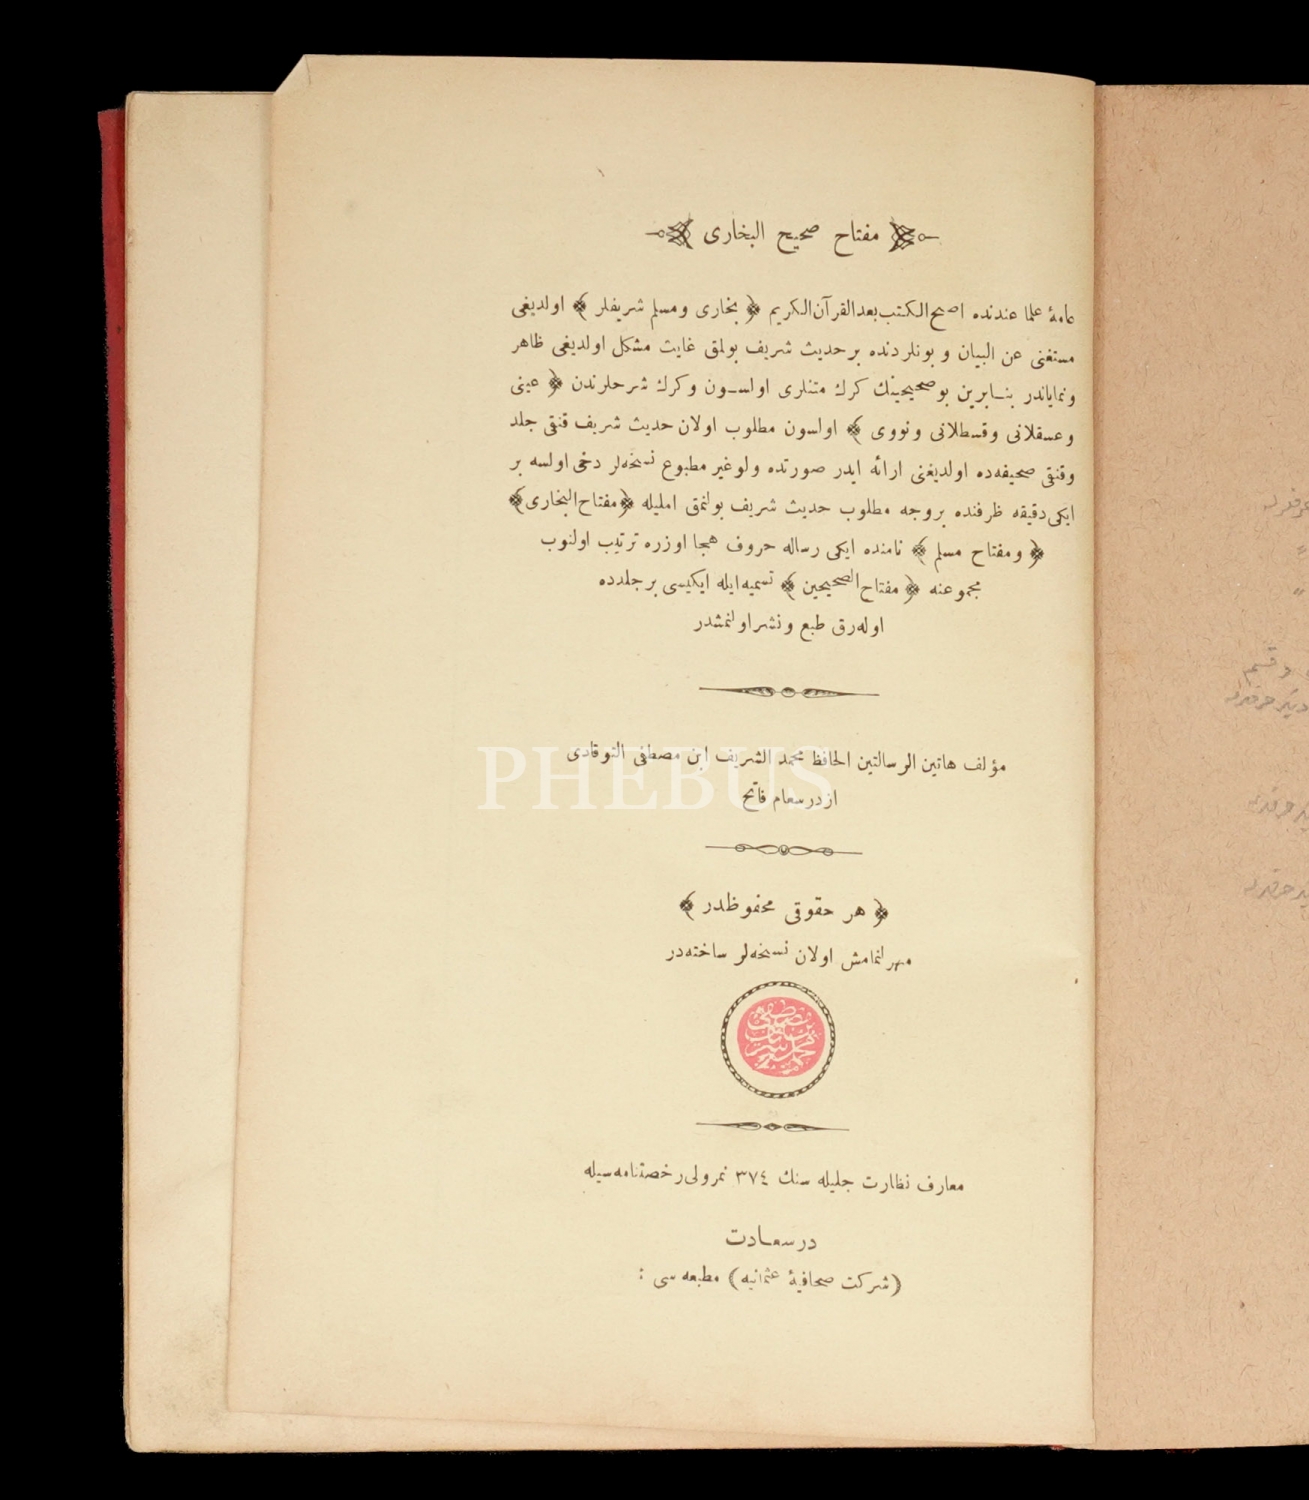 مفتاح صحيح البخارى
عامهٔ علما عندنده اصح الكتب بعد القرآن الكريم ﴿ بخارى ومسلم شريفلر ﴾ اولديغى
مستغنى عن البيان و بونلردنده بر حديث شريف بولمق غايت مشكل اولديغى ظاهر
ونماياندر بنابرين بو صحيحينك كرك متنلرى اولسون وكرك شرحلرندن ﴿ عينى
وعسقلانى وقسطلانى ونووى ﴾ اولسون مطلوب اولان حديث شريف قنقى جلد
وقنقى صحيفه‌ده اولديغنى ارائه ايدر صورتده ولو غير مطبوع نسخه‌لر دخى اولسه بر
ايكى دقيقه ظرفنده بروجه مطلوب حديث شريف بولنمق امليله ﴿ مفتاح البخارى ﴾
﴿ ومفتاح مسلم ﴾ نامنده ايكى رساله حروف هجا اوزره ترتيب اولنوب
مجموعنه ﴿ مفتاح الصحيحين ﴾ تسميه ايله ايكيسى بر جلدده
اوله‌رق طبع ونشر اولنمشدر
مؤلف هاتين الرسالتين الحافظ محمد الشريف ابن مصطفى التوقادى
از درسعام فاتح
PHEBUS
﴿ هر حقوقى محفوظدر ﴾
مهرلنمامش اولان نسخه‌لر ساخته‌در
معارف نظارت جليله سنك ٣٧٤ نمرولى رخصتنامه‌سيله
درسعادت
(شركت صحافيهٔ عثمانيه) مطبعه سى :